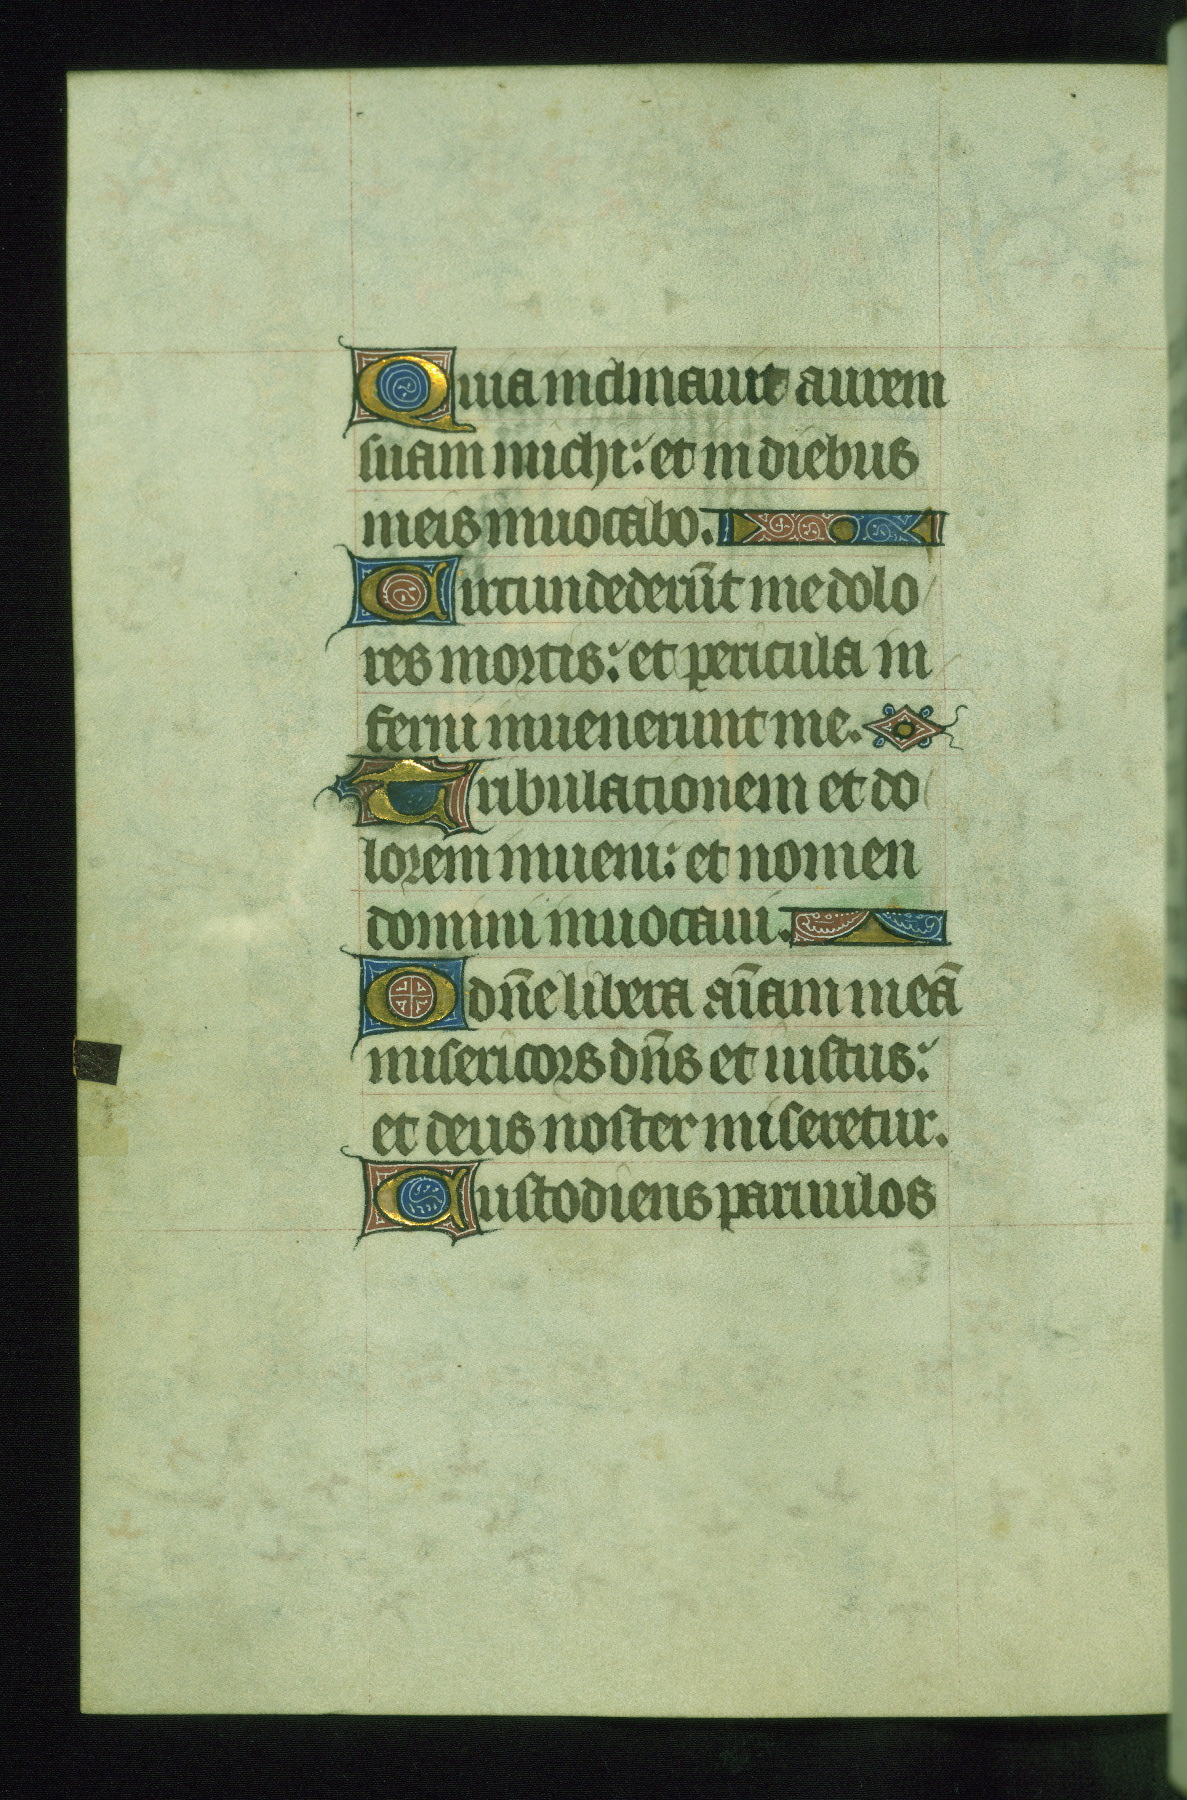 Quia inclinauit aurem
suam michi: et in diebus
meis inuocabo.
Circundederūt me dolo/
res mortis: et pericula in/
ferni inuenerunt me.
Tribulationem et do/
lorem inueni: et nomen
domini inuocaui.
O dn̄e libera aīam meā
misericors dn̄s et iustus:
et deus noster miseretur.
Custodiens paruulos